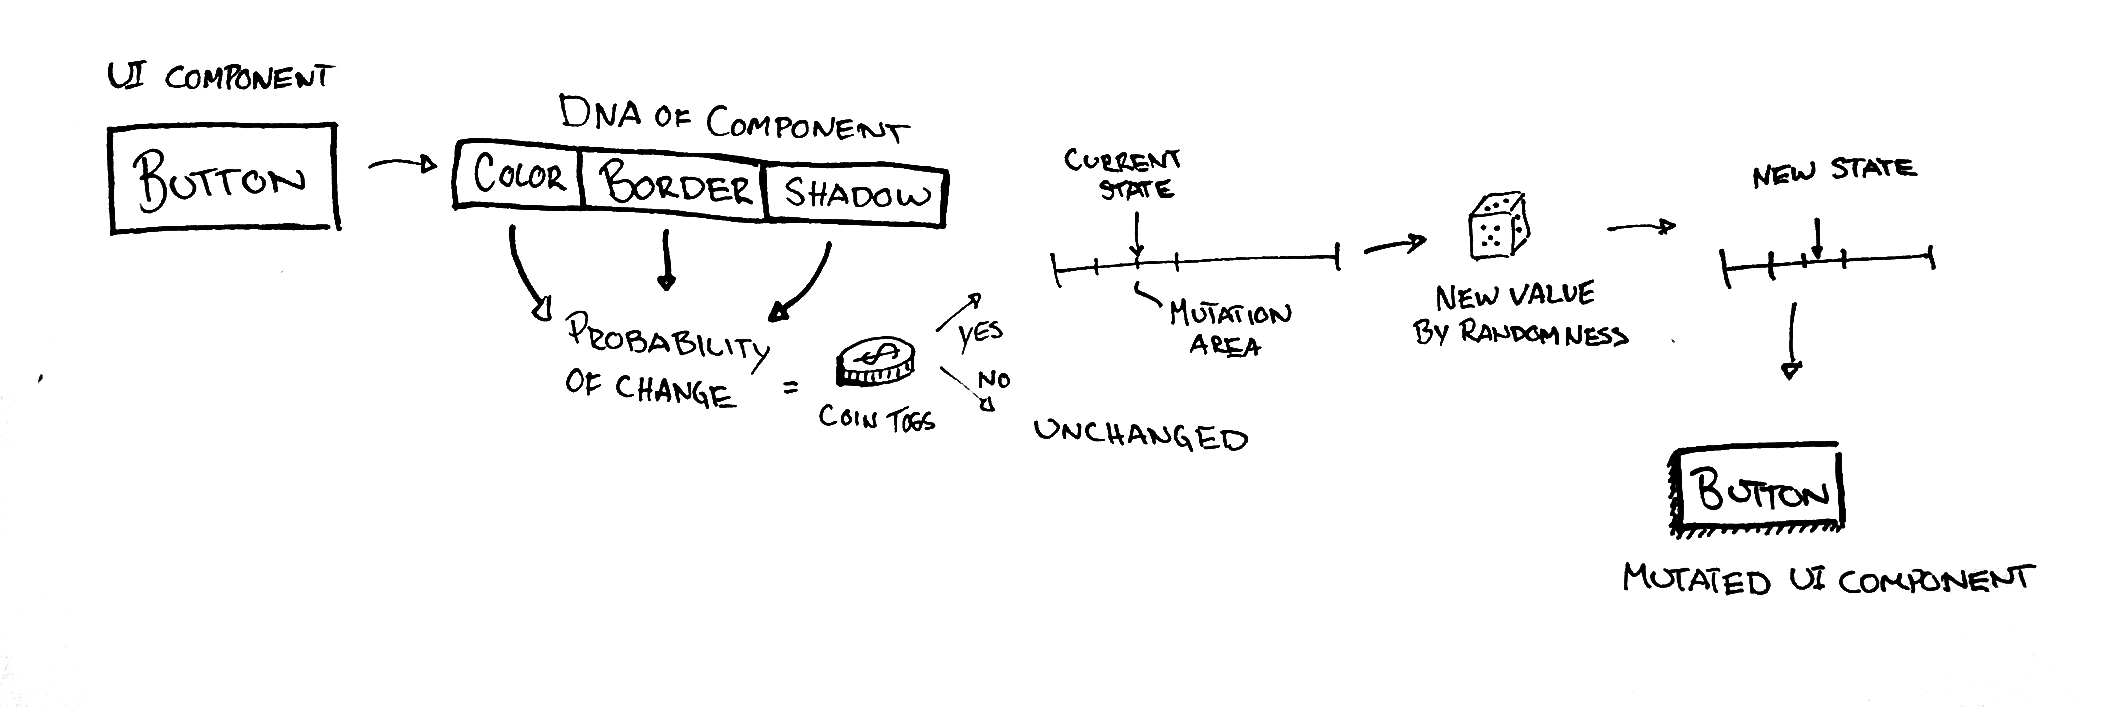 UI COMPONENT
BUTTON
DNA OF COMPONENT
COLOR BORDER SHADOW
PROBABILITY
OF CHANGE =
$
COIN TOSS
YES
NO
UNCHANGED
CURRENT
STATE
MUTATION
AREA
NEW VALUE
BY RANDOMNESS
NEW STATE
BUTTON
MUTATED UI COMPONENT